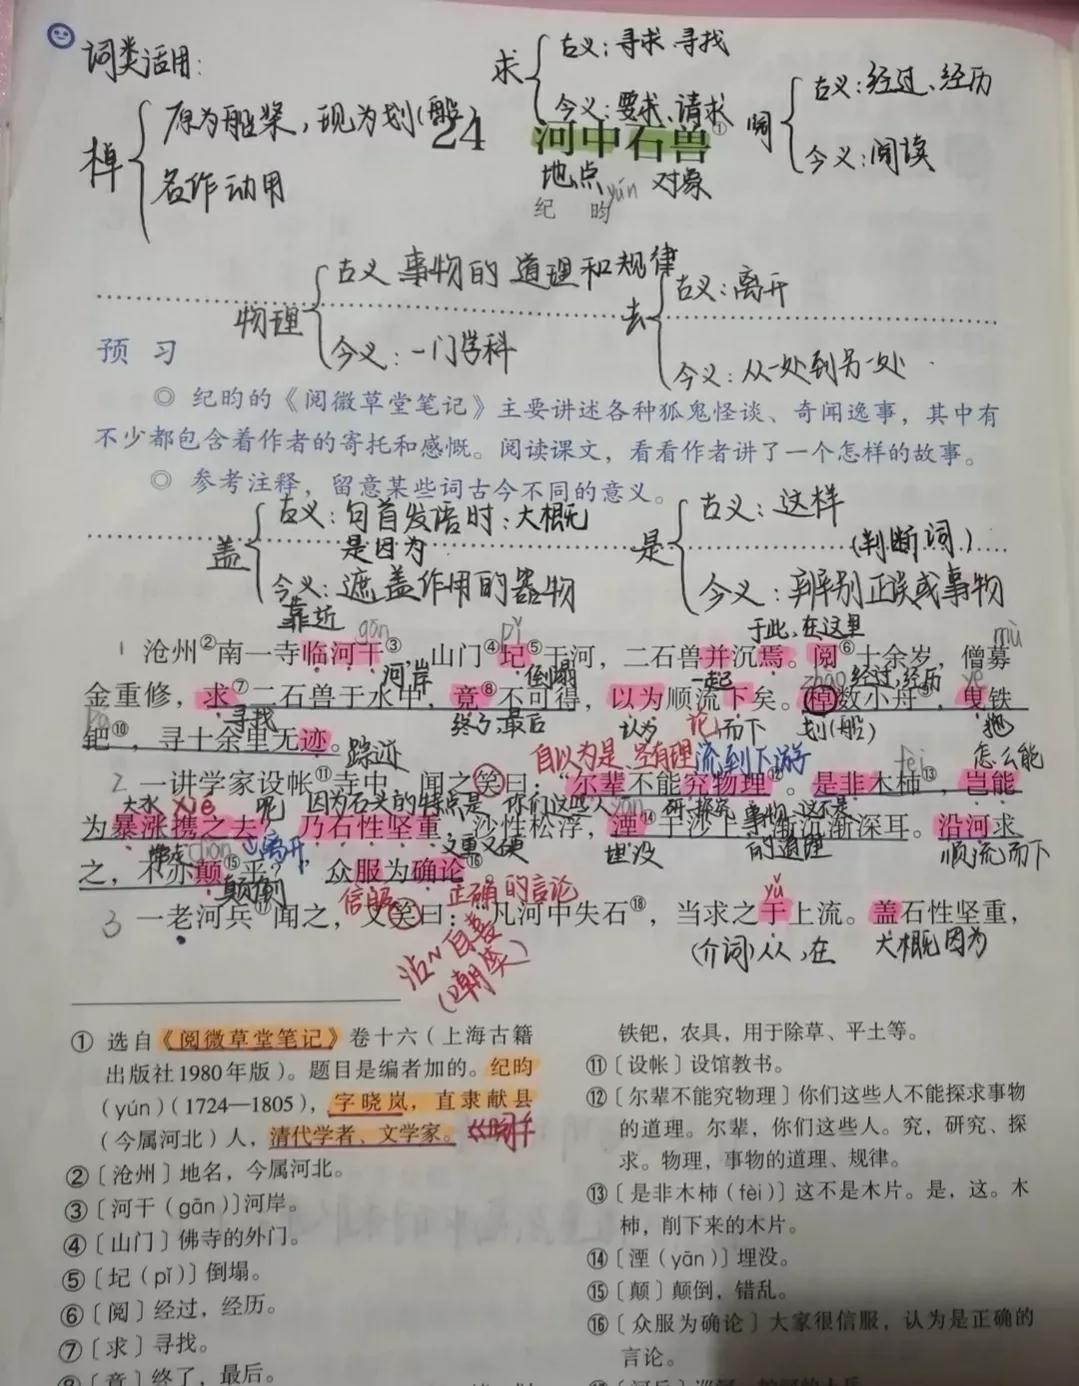 词类活用：
棹
原为船桨，现为划(船)
名作动用
求
古义：寻求 寻找
今义：要求、请求
阅
古义：经过、经历
今义：阅读
24 河中石兽①
地点 对象
纪昀
yún
物理
古义 事物的道理和规律
今义：一门学科
去
古义：离开
今义：从一处到另一处
预 习
◎ 纪昀的《阅微草堂笔记》主要讲述各种狐鬼怪谈、奇闻逸事，其中有
不少都包含着作者的寄托和感慨。阅读课文，看看作者讲了一个怎样的故事。
◎ 参考注释，留意某些词古今不同的意义。
盖
古义：句首发语时：大概
是因为
今义：遮盖作用的器物
是
古义：这样
(判断词)
今义：辨别正误或事物
靠近 gān pǐ 于此、在这里 mù
1 沧州②南一寺临河干③，山门④圮⑤于河，二石兽并沉焉。阅⑥十余岁，僧募
河岸 倒塌 一起 zhào 经过、经历 yè
金重修，求⑦二石兽于水中，竟⑧不可得，以为顺流下矣。棹数小舟⑨，曳铁
寻找 终了、最后 认为 而下 划(船) 拖
钯⑩，寻十余里无迹。
pá 踪迹 自以为是、 流到下游 fèi 怎么能
2 一讲学家设帐⑪寺中，闻之笑曰：“尔辈不能究物理⑫。是非木杮⑬，岂能
大水 xié 呢 因为石头的特点是 你们这些人 yān 研、探究 事物 这不是
为暴涨携之去？乃石性坚重，沙性松浮，湮⑭于沙上，渐沉渐深耳。沿河求
带走 diān 离开 又重又硬 埋没 的道理 顺流而下
之，不亦颠⑮乎？”众服为确论⑯。
颠倒 信服 正确的言论 yú
3 一老河兵⑰闻之，又笑曰：“凡河中失石⑱，当求之于上流。盖石性坚重，
沾~自喜
(嘲笑)
(介词)从、在 大概因为
① 选自《阅微草堂笔记》卷十六（上海古籍
出版社1980年版）。题目是编者加的。纪昀
（yún）（1724—1805），字晓岚，直隶献县
（今属河北）人，清代学者、文学家。
②〔沧州〕地名，今属河北。
③〔河干（gān）〕河岸。
④〔山门〕佛寺的外门。
⑤〔圮（pǐ）〕倒塌。
⑥〔阅〕经过，经历。
⑦〔求〕寻找。
⑧〔竟〕终了，最后。
铁钯，农具，用于除草、平土等。
⑪〔设帐〕设馆教书。
⑫〔尔辈不能究物理〕你们这些人不能探求事物
的道理。尔辈，你们这些人。究，研究、探
求。物理，事物的道理、规律。
⑬〔是非木杮（fèi）〕这不是木片。是，这。木
杮，削下来的木片。
⑭〔湮（yān）〕埋没。
⑮〔颠〕颠倒，错乱。
⑯〔众服为确论〕大家很信服，认为是正确的
言论。